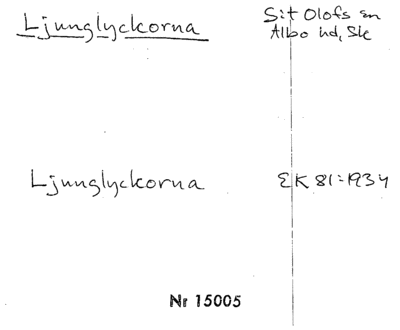 Ljunglyckorna
S:t Olofs sn
Albo hd, Sk
Ljunglyckorna
EK 81:1934
Nr 15005